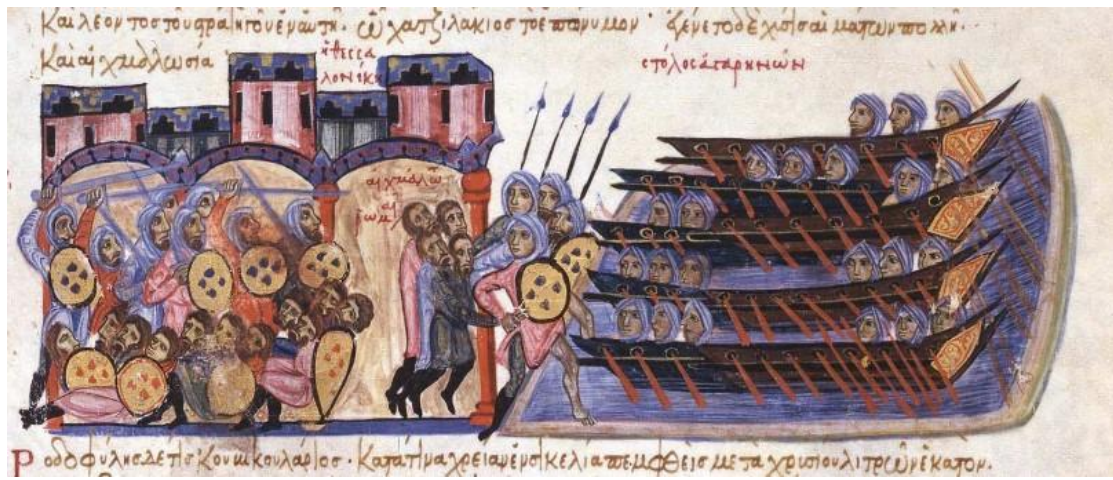 Καὶ λέοντος τοῦ στρατηγοῦ ἐν αὐτῆ· ὧ χατζιλάκιος τὸ ἐπώνυμον· ἐγένετο δὲ χύσις αἱμάτων πολλή·
Καὶ αἰχμαλωσία
ἡ θεσσα
λονίκη
στόλος ἀγαρηνῶν
αἰχμαλω
Ροδοφύλης δέ τις κουβικουλάριος· Κατά τινα χρείαν ἐν σικελία πεμφθεὶς μετὰ χρυσίου λιτρῶν ἑκατόν·